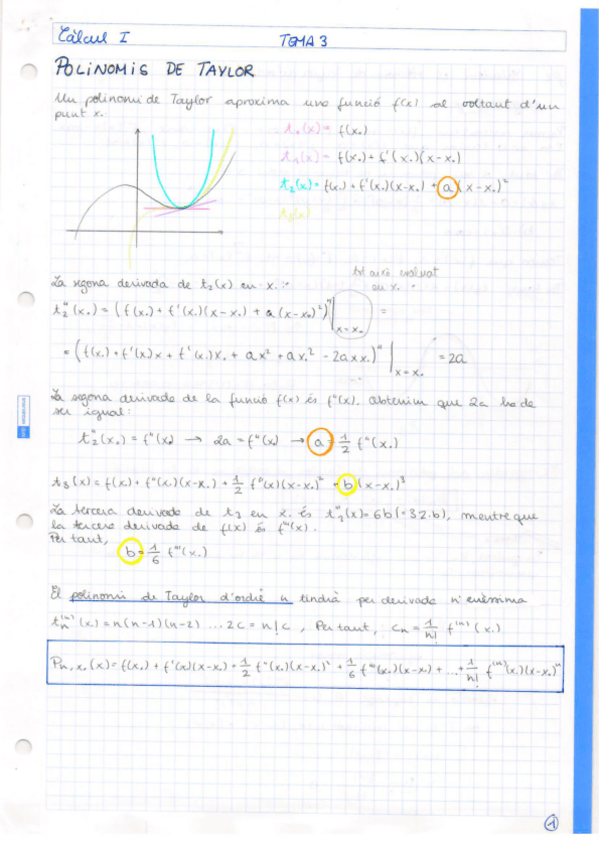 Càlcul I TEMA 3
POLINOMIS DE TAYLOR
Un polinomi de Taylor aproxima una funció f(x) al voltant d'un
punt x₀
t₀(x) = f(x₀)
t₁(x) = f(x₀) + f'(x₀)(x-x₀)
t₂(x) = f(x₀) + f'(x₀)(x-x₀) + a(x-x₀)²
t₃(x)
La segona derivada de t₂(x) en x₀:
avaluat
en x₀
t₂''(x₀) = (f(x₀) + f'(x₀)(x-x₀) + a(x-x₀)²)''|x=x₀ =
= (f(x₀) + f'(x₀)x + f'(x₀)x₀ + ax² + ax₀² - 2axx₀)''|x=x₀ = 2a
La segona derivada de la funció f(x) és f''(x). Obtenim que 2a ha de
ser igual:
t₂''(x₀) = f''(x₀) → 2a = f''(x₀) → a = 1/2 f''(x₀)
t₃(x) = f(x₀) + f'(x₀)(x-x₀) + 1/2 f''(x)(x-x₀)² + b(x-x₀)³
La tercera derivada de t₃ en x₀ és t₃'''(x) = 6b (=3·2·b), mentre que
la tercera derivada de f(x) és f'''(x).
Per tant,
b = 1/6 f'''(x₀)
El polinomi de Taylor d'ordre n tindrà per derivada n enèssima
tₙ⁽ⁿ⁾(x₀) = n(n-1)(n-2) ... 2c = n!c, Per tant, : cₙ = 1/n! f⁽ⁿ⁾(x₀)
Pₙ,ₓ₀(x) = f(x₀) + f'(x₀)(x-x₀) + 1/2 f''(x₀)(x-x₀)² + 1/6 f'''(x₀)(x-x₀) + ... + 1/n! f⁽ⁿ⁾(x₀)(x-x₀)ⁿ
1